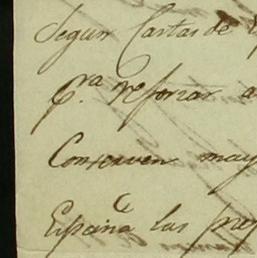 Segun Cartas de
p.ª reforzar a
Conserven may
España las pro